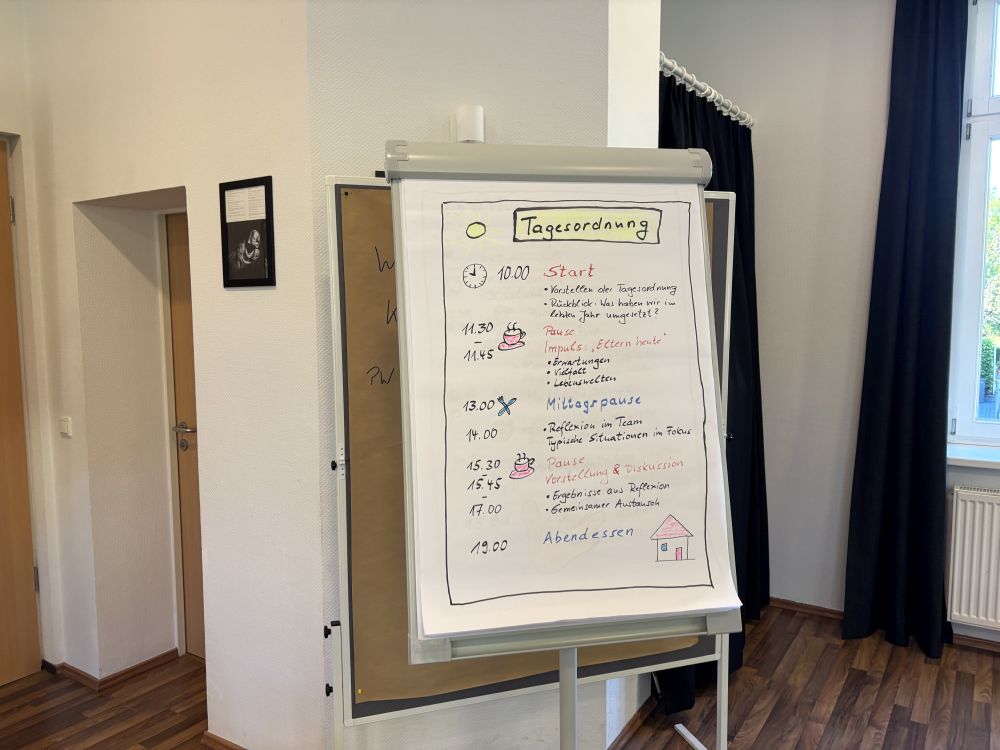 Tagesordnung
10.00 Start
• Vorstellen der Tagesordnung
• Rückblick: Was haben wir im
letzten Jahr umgesetzt?
11.30 Pause
–
11.45 Impuls: „Eltern heute"
• Erwartungen
• Vielfalt
• Lebenswelten
13.00 Mittagspause
14.00 • Reflexion im Team
Typische Situationen im Fokus
15.30 Pause
–
15.45 Vorstellung & Diskussion
–
• Ergebnisse aus Reflexion
17.00 • Gemeinsamer Austausch
19.00 Abendessen
W
K
PW